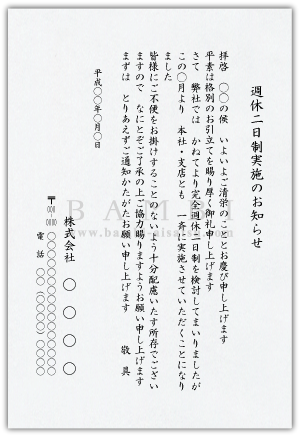 週休二日制実施のお知らせ
拝啓　〇〇の候　いよいよご清栄のこととお慶び申し上げます
平素は格別のお引立てを賜り厚く御礼申し上げます
さて　弊社では　かねてより完全週休二日制を検討してまいりましたが
この〇月より　本社・支店とも　一斉に実施させていただくことになり
ました
皆様にご不便をお掛けすることのないよう十分配慮いたす所存でござい
ますので　なにとぞご了承の上ご協力賜りますようお願い申し上げます
まずは　とりあえずご通知かたがたお願い申し上げます　　敬　具
平成〇〇年〇月〇日
株式会社　〇　〇　〇　〇
〒000-0000　〇〇〇〇〇〇〇〇〇〇〇〇
電　話　〇〇（〇〇〇）〇〇〇〇